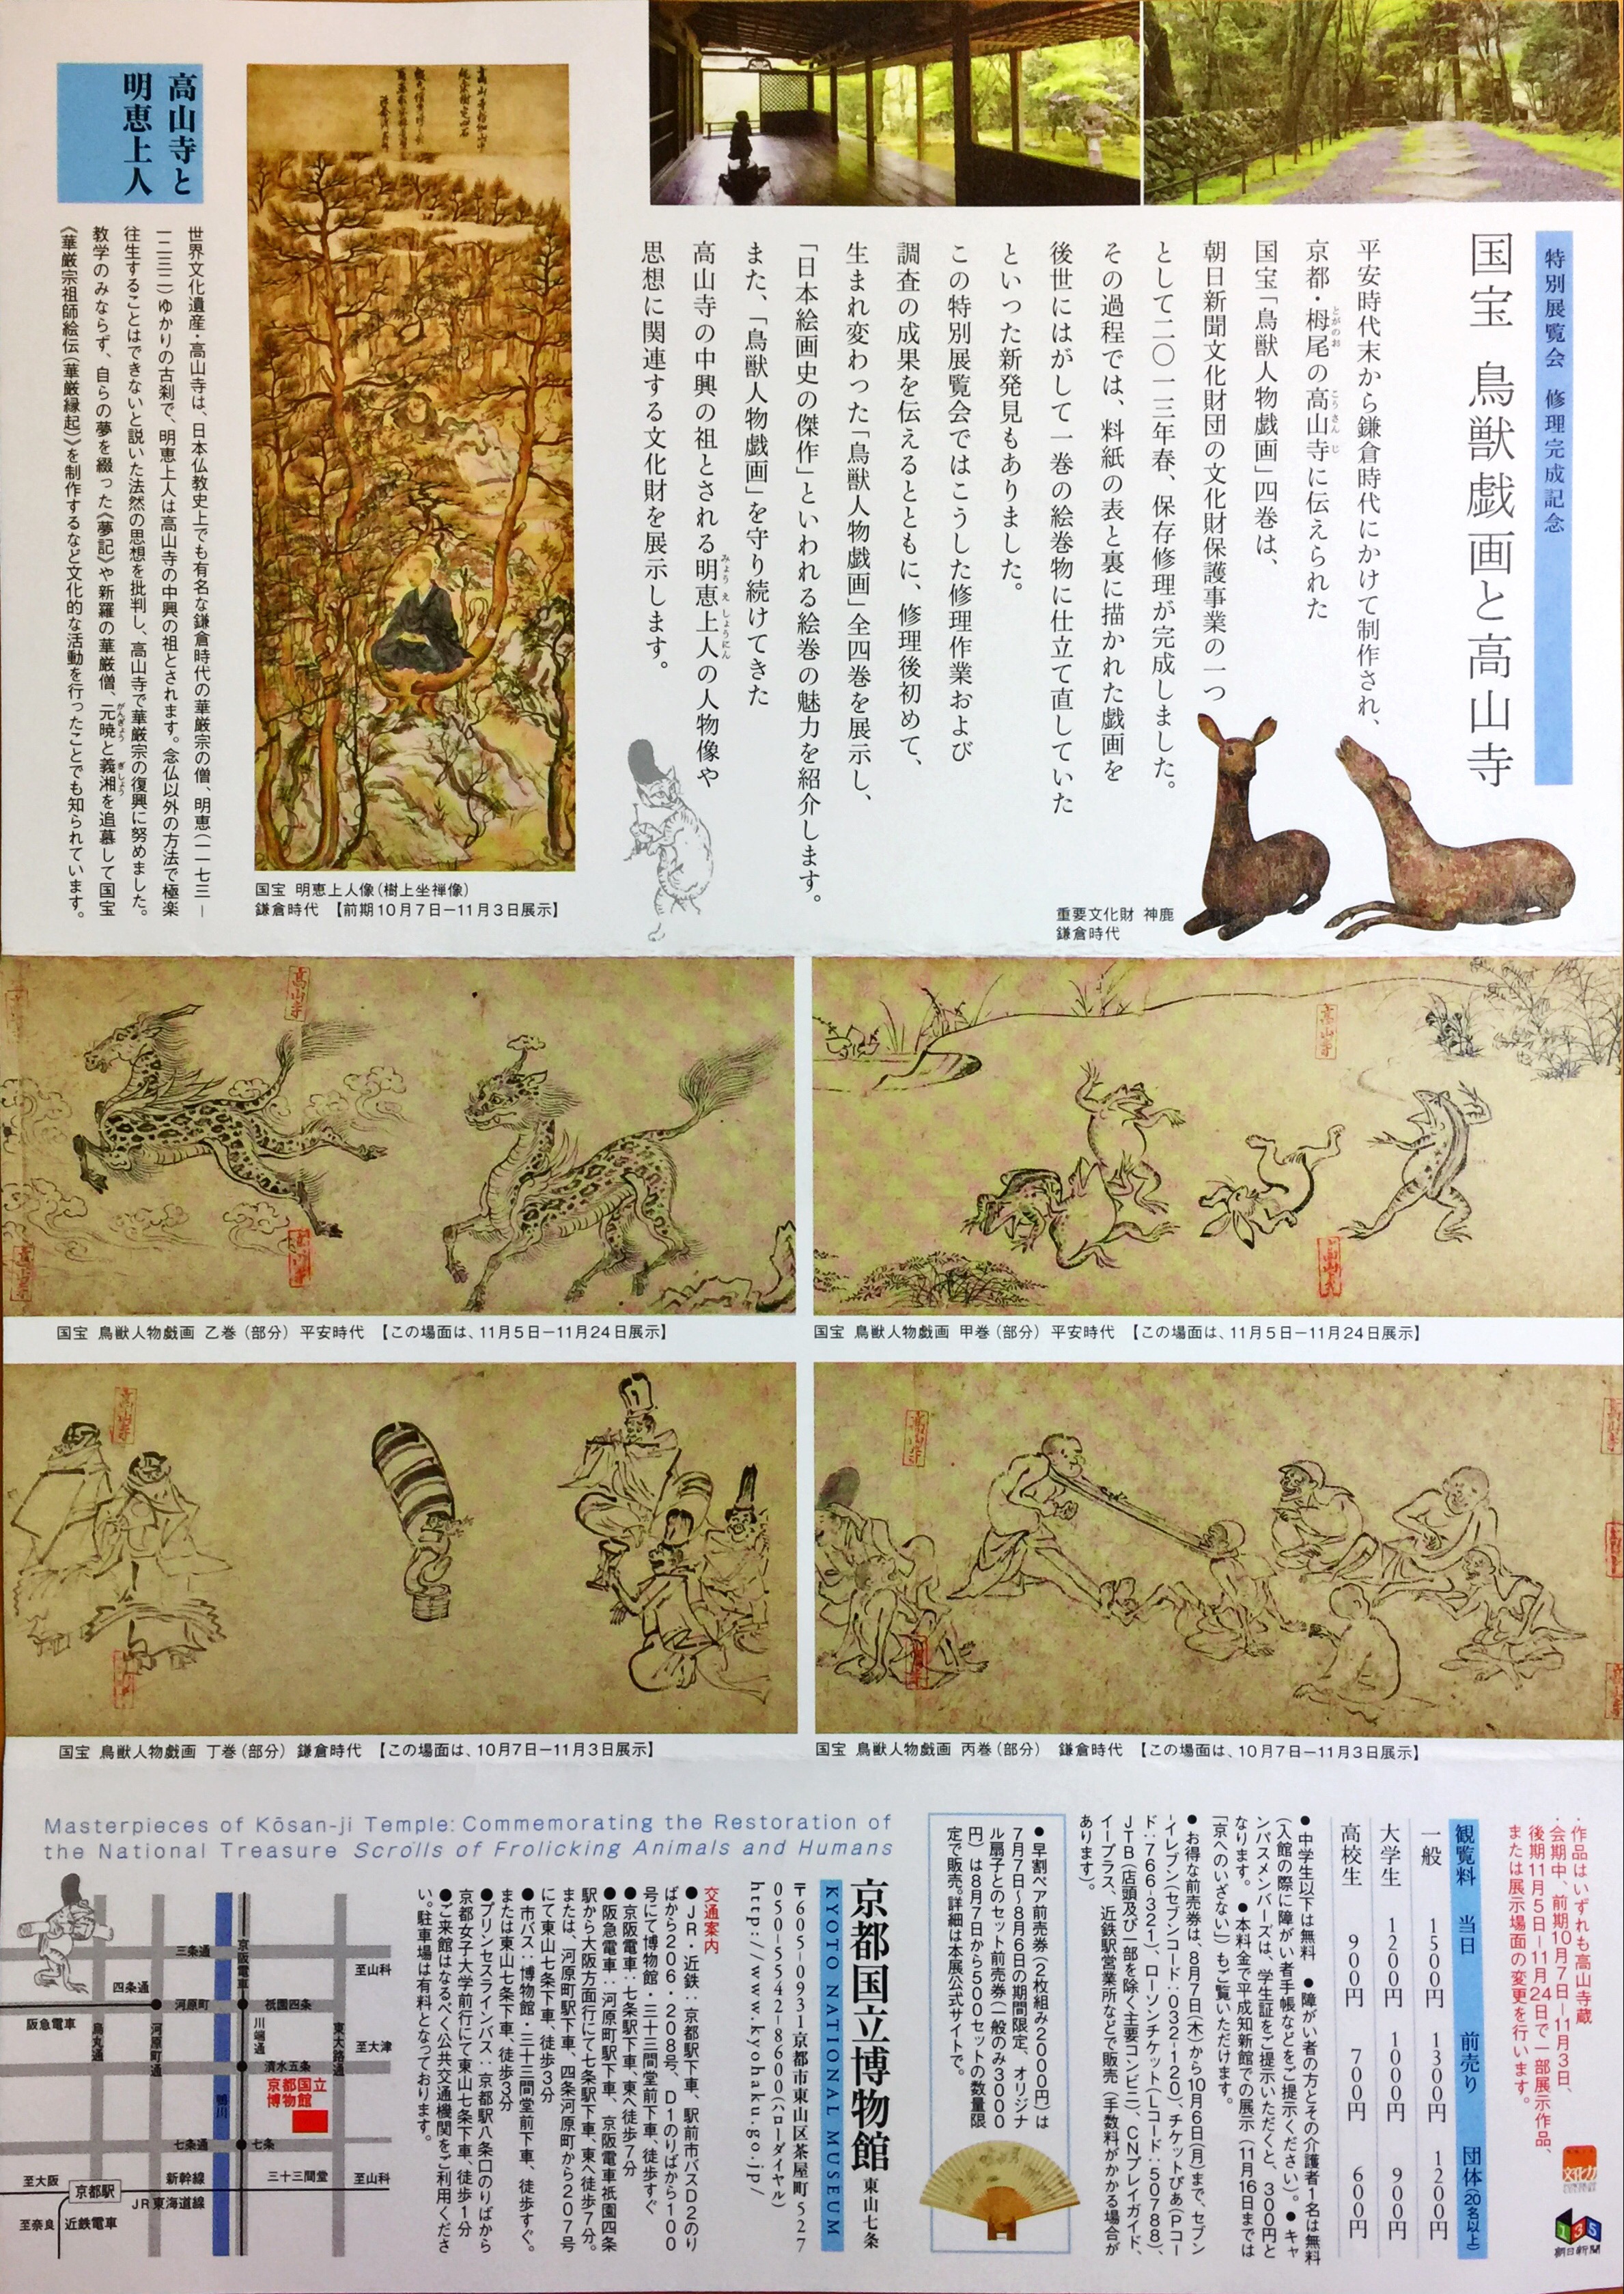 特別展覧会 修理完成記念
国宝 鳥獣戯画と高山寺
平安時代末から鎌倉時代にかけて制作され、
京都・栂尾の高山寺に伝えられた
とがのお
こうさんじ
国宝「鳥獣人物戯画」四巻は、
朝日新聞文化財団の文化財保護事業の一つ
として二〇一三年春、保存修理が完成しました。
その過程では、料紙の表と裏に描かれた戯画を
後世にはがして一巻の絵巻物に仕立て直していた
といった新発見もありました。
この特別展覧会ではこうした修理作業および
調査の成果を伝えるとともに、修理後初めて、
生まれ変わった「鳥獣人物戯画」全四巻を展示し、
「日本絵画史の傑作」といわれる絵巻の魅力を紹介します。
また、「鳥獣人物戯画」を守り続けてきた
高山寺の中興の祖とされる明恵上人の人物像や
みょうえしょうにん
思想に関連する文化財を展示します。
重要文化財 神鹿
鎌倉時代
国宝 明恵上人像(樹上坐禅像)
鎌倉時代 【前期10月7日−11月3日展示】
高山寺と
明恵上人
世界文化遺産・高山寺は、日本仏教史上でも有名な鎌倉時代の華厳宗の僧、明恵(一一七三−
一二三二)ゆかりの古刹で、明恵上人は高山寺の中興の祖とされます。念仏以外の方法で極楽
往生することはできないと説いた法然の思想を批判し、高山寺で華厳宗の復興に努めました。
教学のみならず、自らの夢を綴った《夢記》や新羅の華厳僧、元暁と義湘を追慕して国宝
がんぎょう
ぎしょう
《華厳宗祖師絵伝(華厳縁起)》を制作するなど文化的な活動を行ったことでも知られています。
高山寺
高山寺
国宝 鳥獣人物戯画 甲巻(部分) 平安時代 【この場面は、11月5日−11月24日展示】
国宝 鳥獣人物戯画 乙巻(部分) 平安時代 【この場面は、11月5日−11月24日展示】
国宝 鳥獣人物戯画 丙巻(部分) 鎌倉時代 【この場面は、10月7日−11月3日展示】
国宝 鳥獣人物戯画 丁巻(部分) 鎌倉時代 【この場面は、10月7日−11月3日展示】
・作品はいずれも高山寺蔵
・会期中、前期10月7日−11月3日、
後期11月5日−11月24日で一部展示作品、
または展示場面の変更を行います。
観覧料 当日 前売り 団体(20名以上)
一般 1500円 1300円 1200円
大学生 1200円 1000円 900円
高校生 900円 700円 600円
●中学生以下は無料 ●障がい者の方とその介護者1名は無料
(入館の際に障がい者手帳などをご提示ください)。 ●キャ
ンパスメンバーズは、学生証をご提示いただくと、300円と
なります。 ●本料金で平成知新館での展示(11月16日までは
「京へのいざない」)もご覧いただけます。
●お得な前売券は、8月7日(木)から10月6日(月)まで、セブン
-イレブン(セブンコード:032-120)、チケットぴあ(Pコー
ド:766-321)、ローソンチケット(Lコード:50788)、
JTB(店頭及び一部を除く主要コンビニ)、CNプレイガイド、
イープラス、近鉄駅営業所などで販売(手数料がかかる場合が
あります)。
●早割ペア前売券(2枚組み2000円)は
7月7日〜8月6日の期間限定、オリジナ
ル扇子とのセット前売券(一般のみ3000
円)は8月7日から500セットの数量限
定で販売。詳細は本展公式サイトで。
文化力
135
朝日新聞
Masterpieces of Kōsan-ji Temple: Commemorating the Restoration of
the National Treasure Scrolls of Frolicking Animals and Humans
京都国立博物館 東山七条
KYOTO NATIONAL MUSEUM
〒605-0931京都市東山区茶屋町527
050-5542-8600(ハローダイヤル)
http://www.kyohaku.go.jp/
交通案内
●JR・近鉄:京都駅下車、駅前市バスD2のり
ばから206・208号、D1のりばから100
号にて博物館・三十三間堂前下車、徒歩すぐ
●京阪電車:七条駅下車、東へ徒歩7分
●阪急電車:河原町駅下車、京阪電車祇園四条
駅から大阪方面行にて七条駅下車、東へ徒歩7分。
または、河原町駅下車、四条河原町から207号
にて東山七条下車、徒歩3分
●市バス:博物館・三十三間堂前下車、徒歩すぐ。
または東山七条下車、徒歩3分
●プリンセスラインバス:京都駅八条口のりばから
京都女子大学前行にて東山七条下車、徒歩1分
●ご来館はなるべく公共交通機関をご利用くださ
い。駐車場は有料となっております。
三条通
京阪電車
至山科
四条通
河原町
祇園四条
阪急電車
烏丸通
河原町通
川端通
東大路通
至大津
清水五条
京都国立
博物館
鴨川
七条通
七条
至大阪
新幹線
三十三間堂
至山科
京都駅
JR東海道線
至奈良
近鉄電車